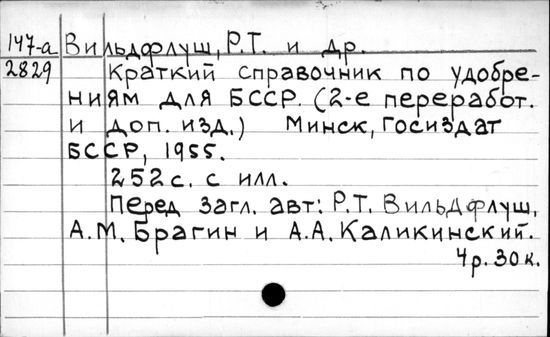 147-а Вильдфлуш, Р.Т. и др.
2829 Краткий справочник по удобре-
ниям для БССР. (2-е переработ.
и доп. изд.) Минск, Госиздат
БССР, 1955.
252 с. с илл.
Перед загл. авт: Р.Т. Вильдфлуш,
А.М. Брагин и А.А. Каликинский.
4 р. 30 к.